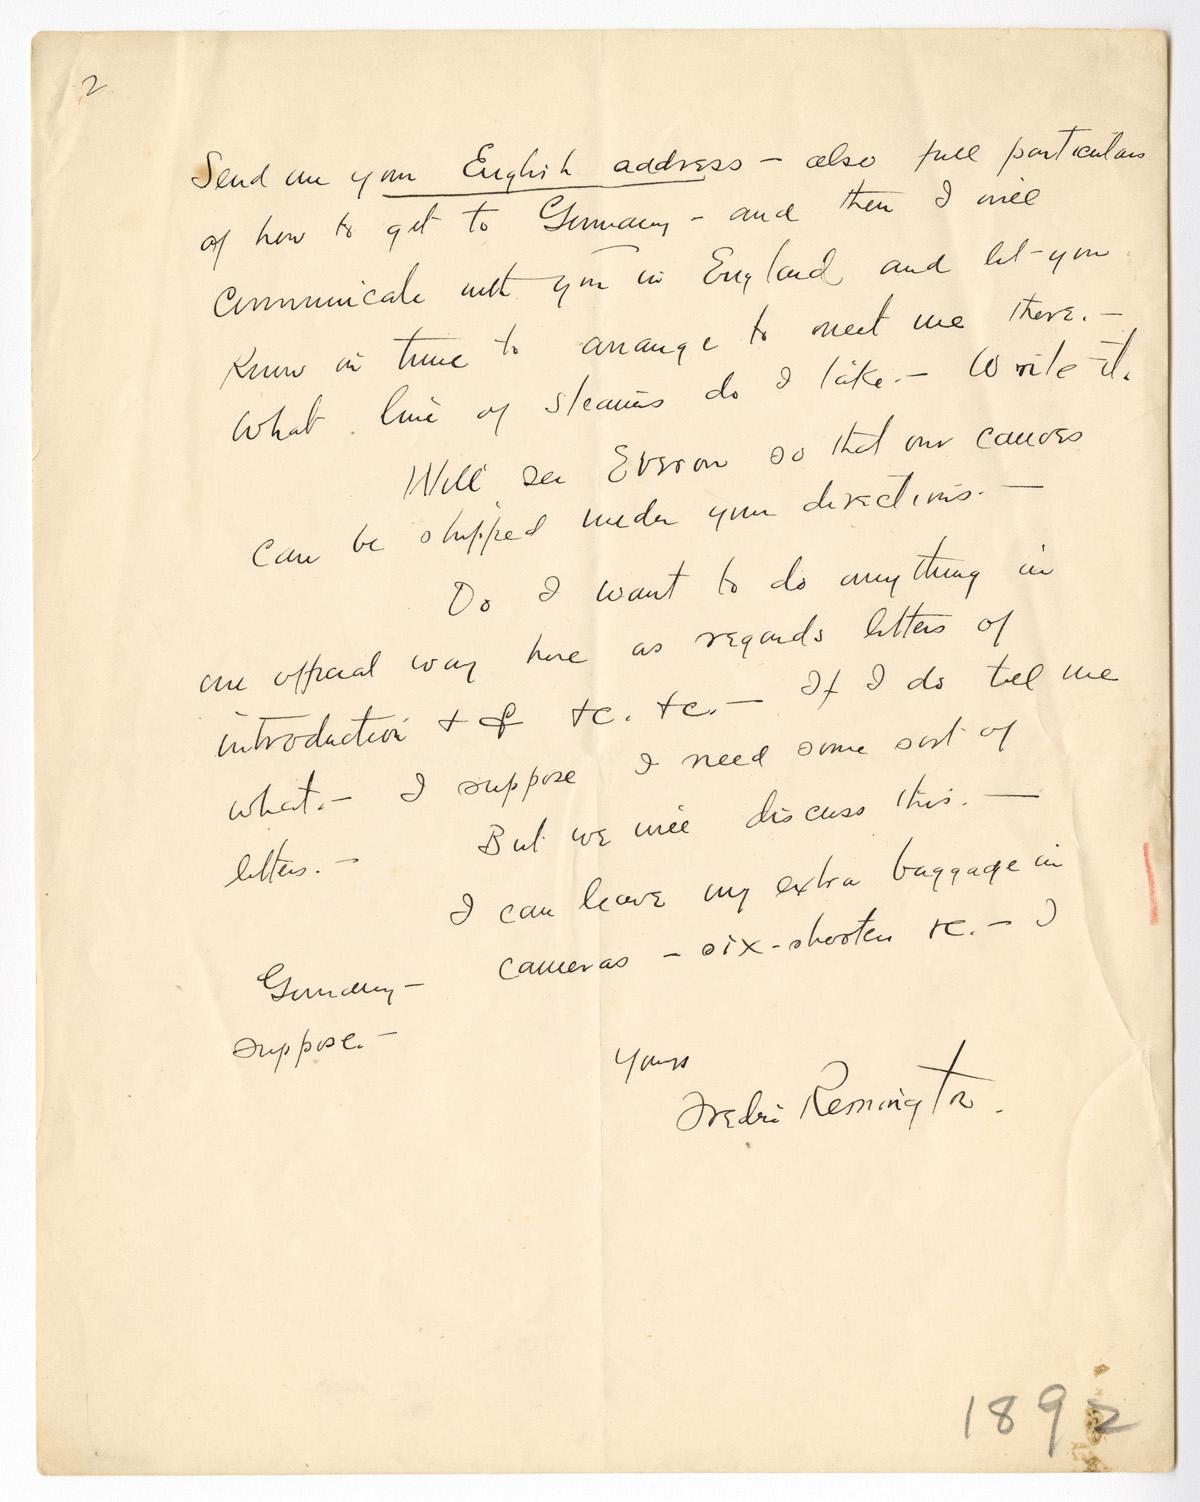 2
Send me your English address - also full particulars
of how to get to Germany - and then I will
communicate with you in England and let - you
Know in time to arrange to meet me there. -
What line of steamers do I take. - Write it.
Will see Everson so that our canoes
can be shipped under your directions. -
Do I want to do anything in
an official way here as regards letters of
introduction + & +c. +c. - If I do tell me
what. - I suppose I need some sort of
letters. - But we will discuss this. -
I can leave my extra baggage in
Germany - cameras - six-shooter +c. - I
suppose. -
Yours
Frederic Remington.
1892